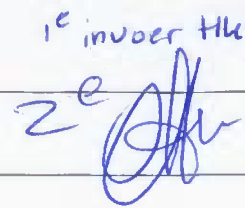 1e invoer HK
2e